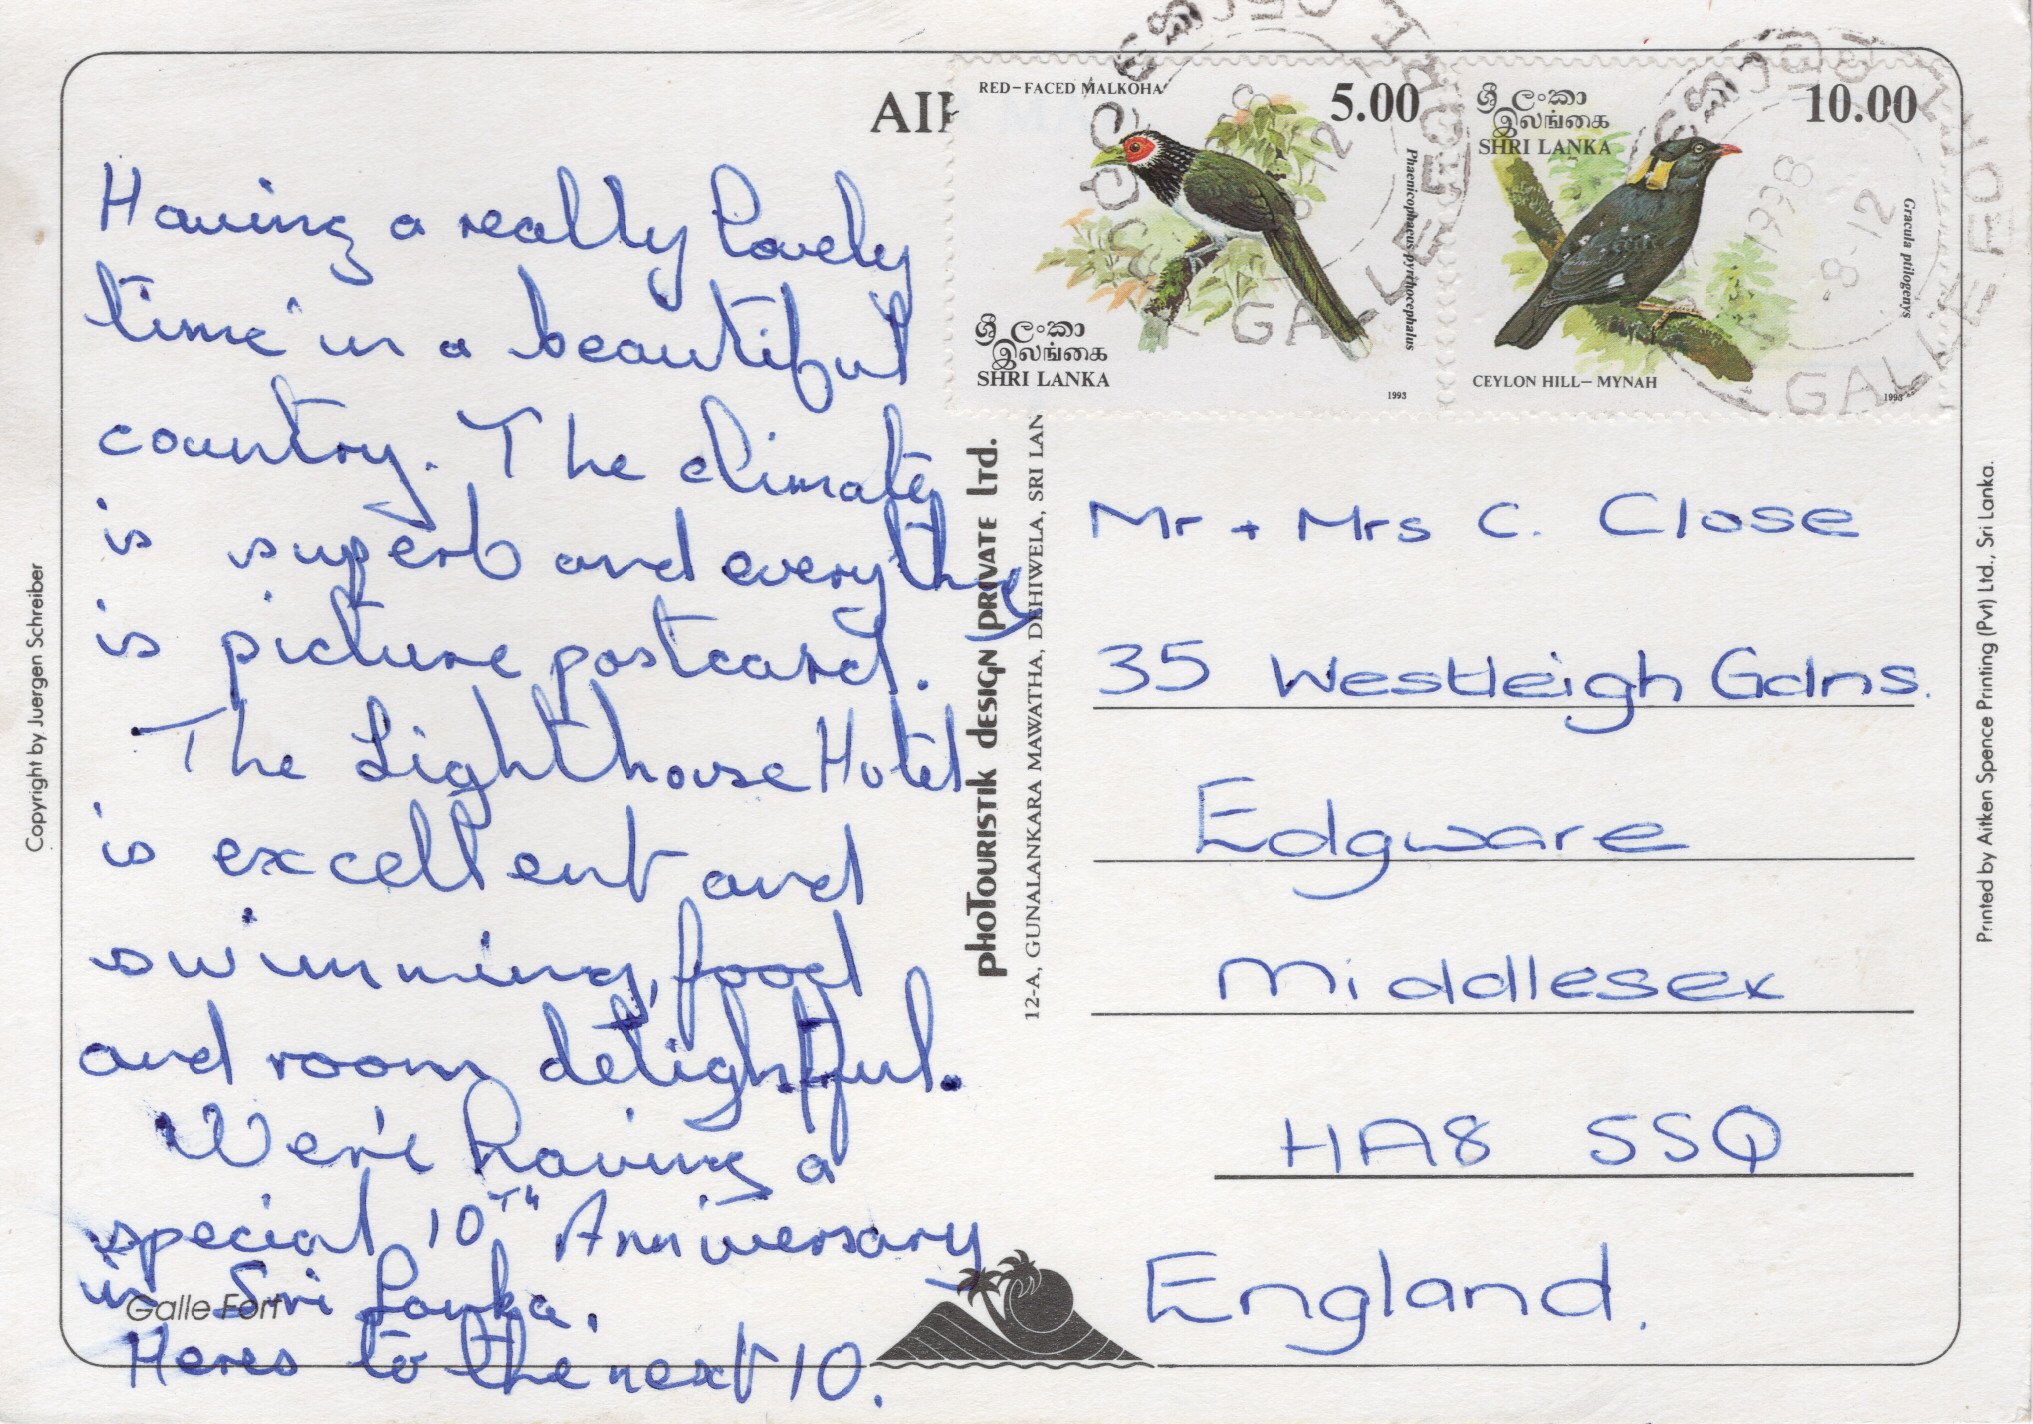 AI
RED-FACED MALKOHA
5.00
Phaenicophaeus pyrrhocephalus
ශ්‍රී ලංකා
இலங்கை
SHRI LANKA
1993
ශ්‍රී ලංකා
இலங்கை
SHRI LANKA
10.00
Gracula ptilogenys
CEYLON HILL-MYNAH
1993
GALLE FORT
8-12
1998
8-12
GALLE FORT
Having a really lovely
time in a beautiful
country. The climate
is superb and everything
is picture postcard.
The Lighthouse Hotel
is excellent and
swimming, food
and room delightful.
We're having a
special 10TH Anniversary
in Sri Lanka.
Heres to the next 10.
Galle Fort
Copyright by Juergen Schreiber
phoTouristik design private ltd.
12-A, GUNALANKARA MAWATHA, DEHIWELA, SRI LAN
Mr + Mrs C. Close
35 Westleigh Gdns.
Edgware
Middlesex
HA8 5SQ
England.
Printed by Aitken Spence Printing (Pvt) Ltd., Sri Lanka.